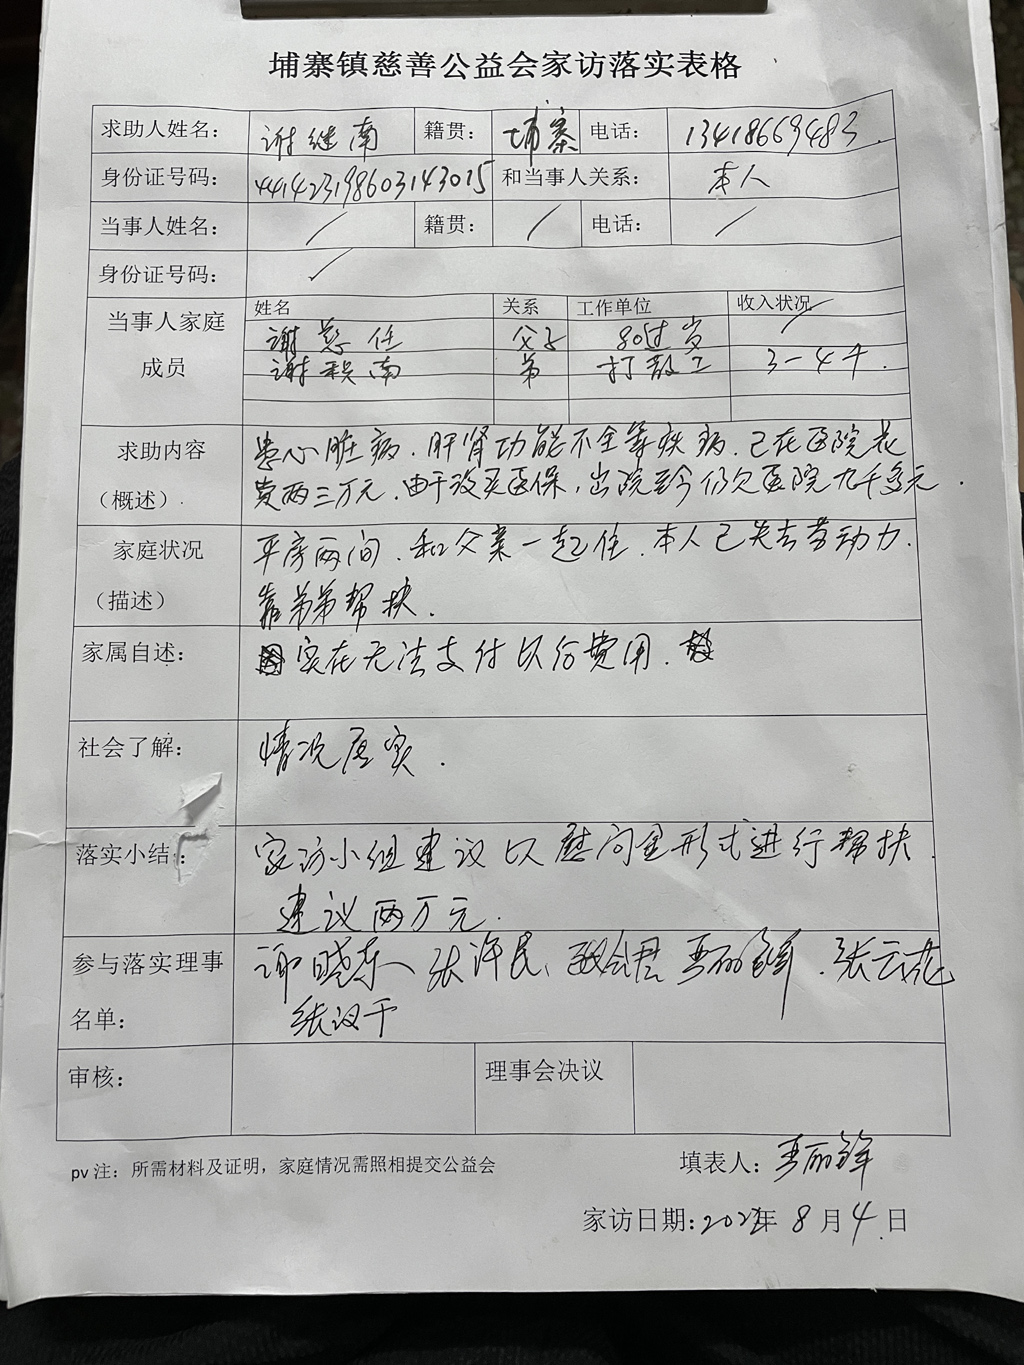 埔寨镇慈善公益会家访落实表格
求助人姓名： 谢继南 籍贯： 埔寨 电话： 13418669483
身份证号码： 441423198603143015 和当事人关系： 本人
当事人姓名： / 籍贯： / 电话： /
身份证号码： /
当事人家庭成员 姓名 关系 工作单位 收入状况
谢 任 父子 80过岁 /
谢 南 弟 打散工 3-4千.
求助内容（概述）. 患心脏病.肝肾功能不全等疾病.已在医院花
费两三万元.由于没买医保,出院至今仍欠医院九千多元.
家庭状况（描述） 平房两间.和父亲一起住.本人已失去劳动力.
靠弟弟帮扶.
家属自述： 实在无法支付以后费用.
社会了解： 情况属实.
落实小结： 家访小组建议以慰问金形式进行帮扶.
建议两万元.
参与落实理事名单： 谢晓东 张萍民、 张云花
张汉千
审核： 理事会决议
pv 注：所需材料及证明，家庭情况需照相提交公益会 填表人：
家访日期: 年 8 月 4 日